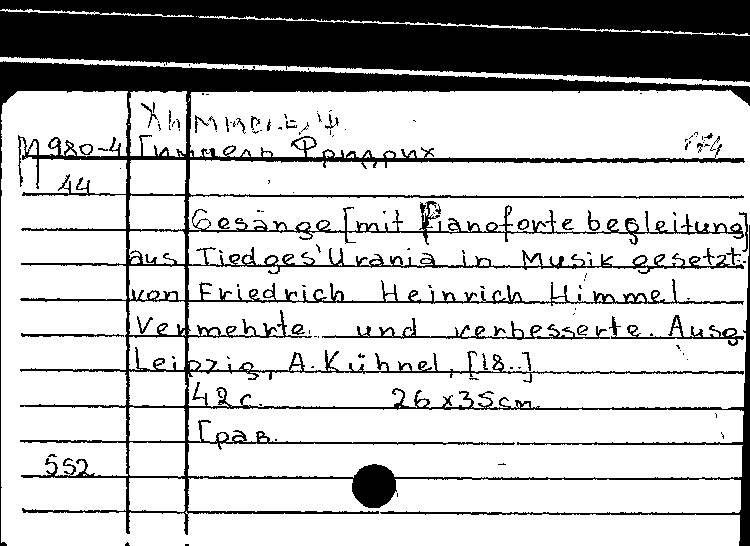 Химмель, Ф.
П 980-4 Гиммель Фридрих
44
Gesänge [mit Pianoforte begleitung]
aus Tiedges' Urania in Musik gesetzt
von Friedrich Heinrich Himmel.
Vermehrte und verbesserte Ausg
Leipzig, A. Kühnel, [18..]
42 с. 26 x 35 cm
Грав.
552